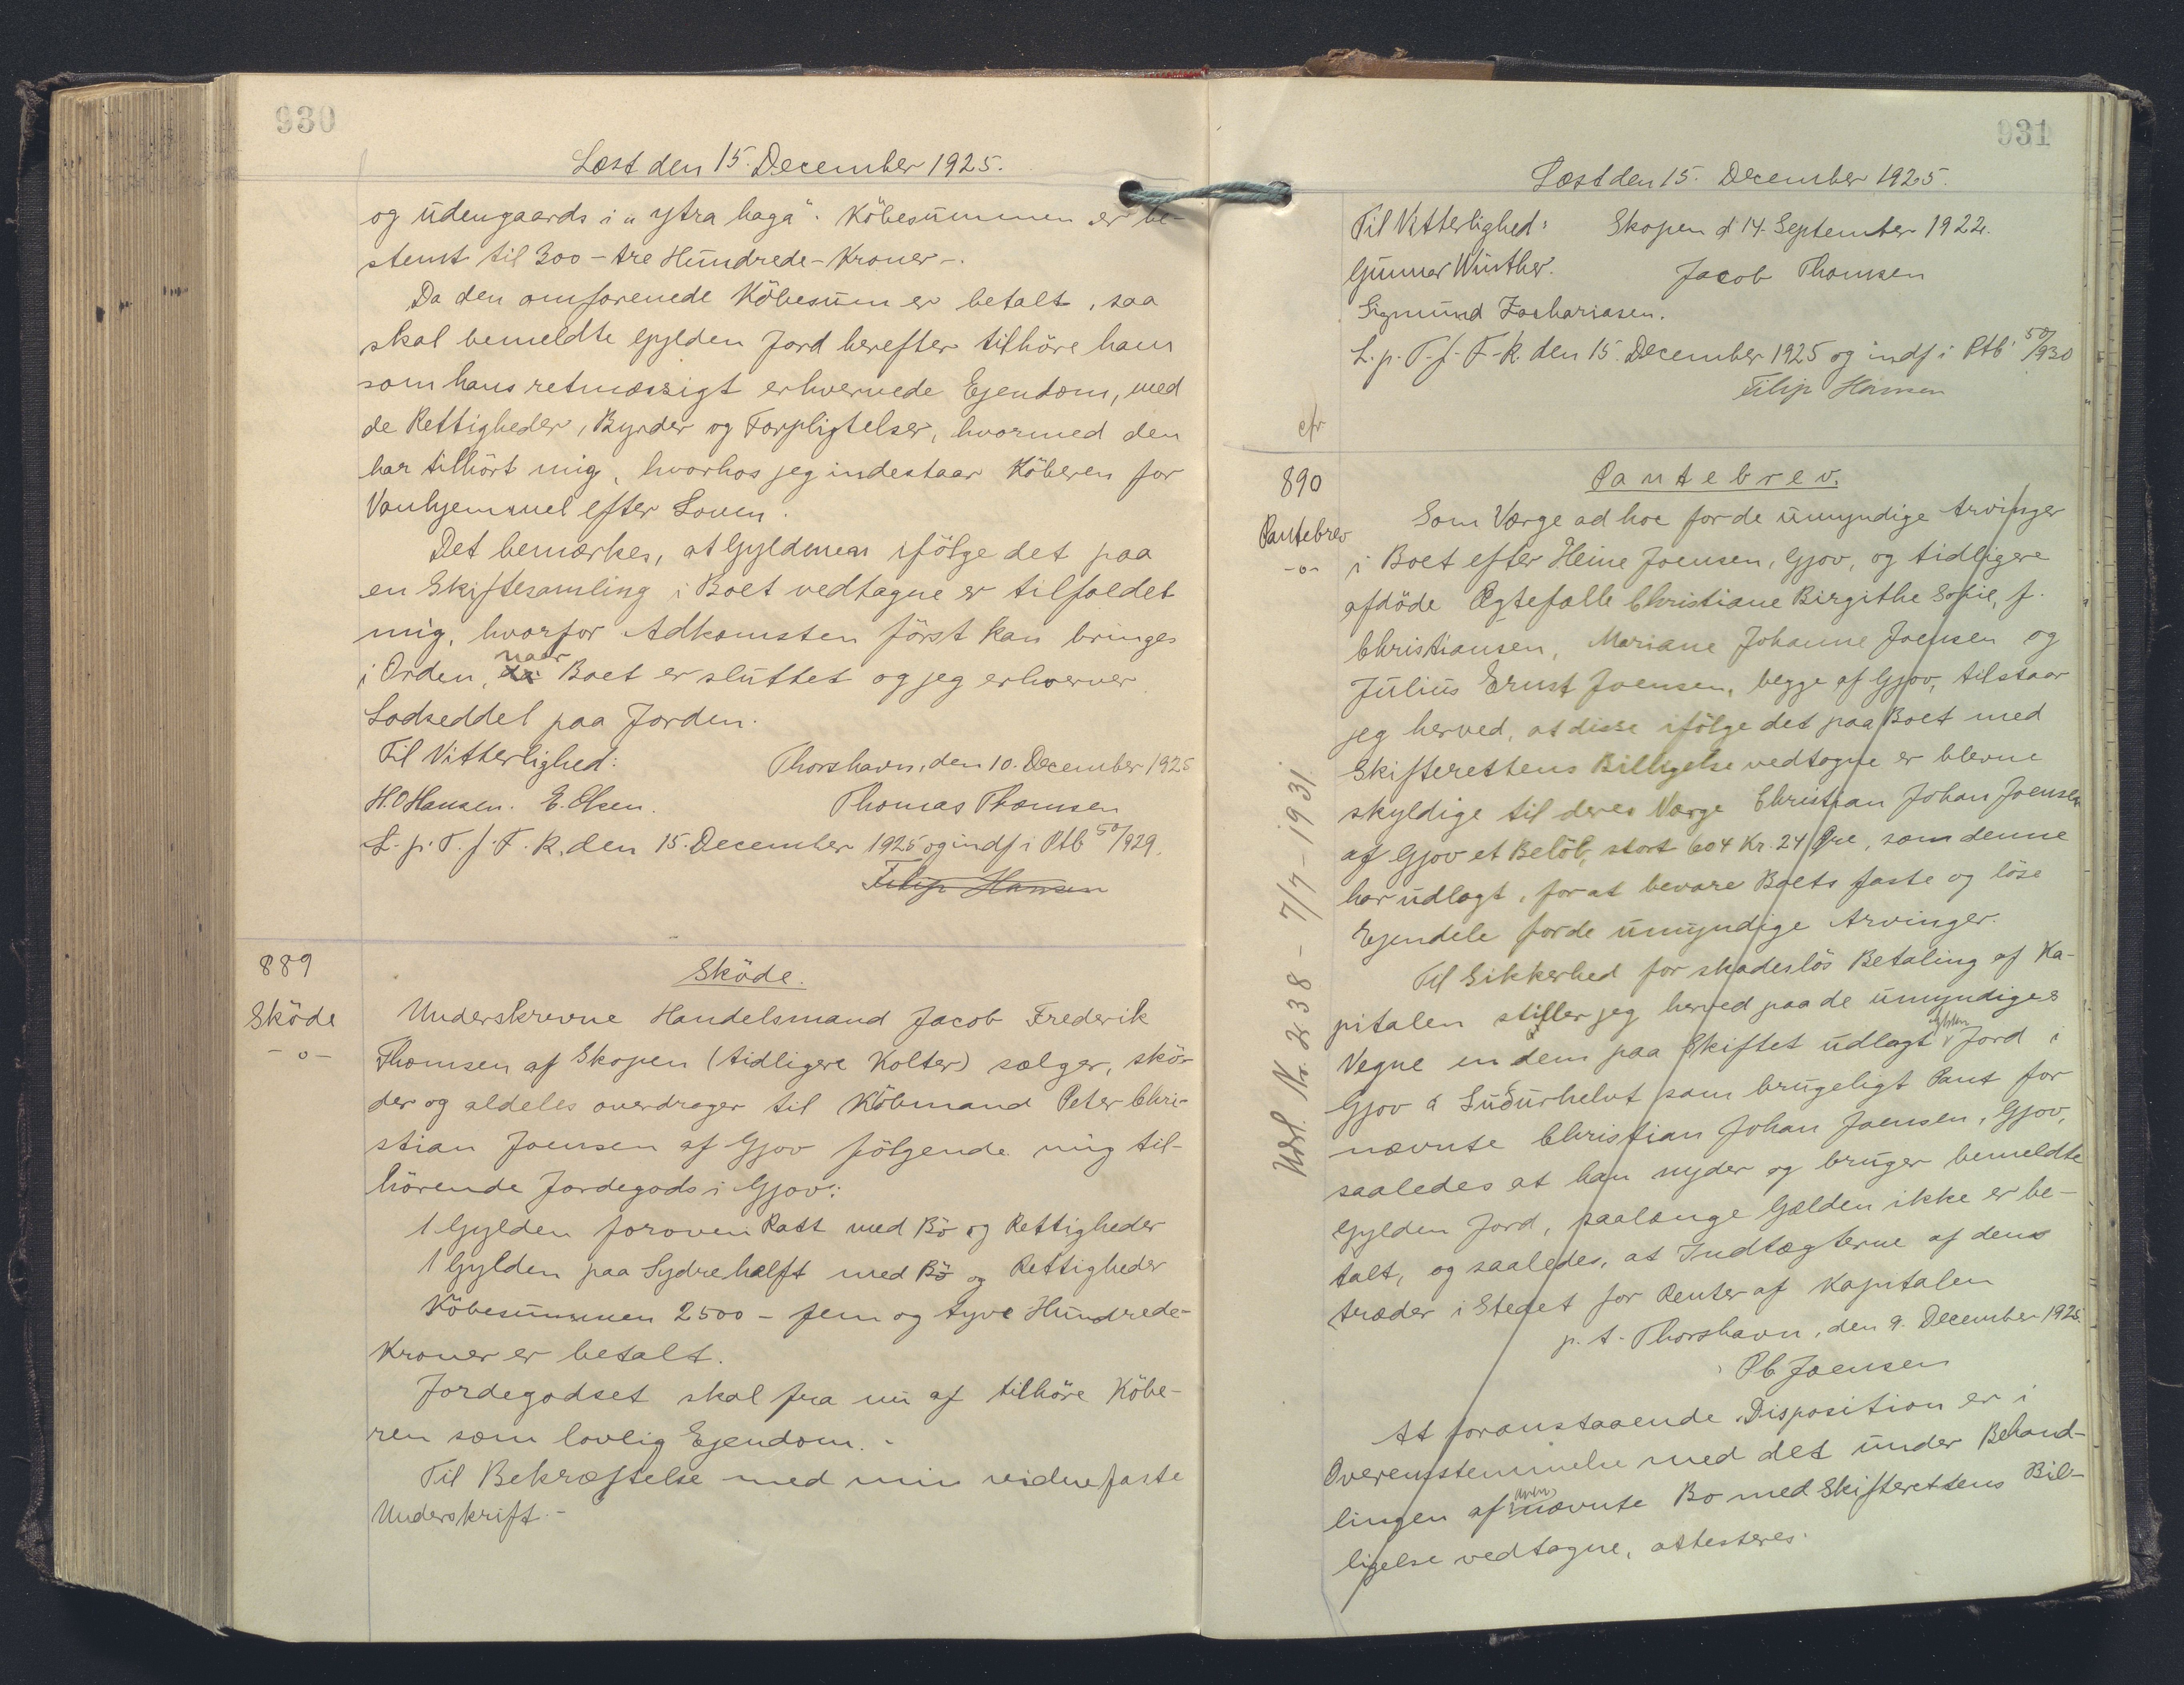 930
Læst den 15. December 1925.
og udengaards i "ytra haga". Köbesummen er be-
stemt til 300 - tre Hundrede - Kroner -.
Da den omforenede Köbesum er betalt, saa
skal bemeldte Gylden Jord herefter tilhöre ham
som hans retmæssigt erhvervede Ejendom, med
de Rettigheder, Byrder og Forpligtelser, hvormed den
har tilhört mig, hvorhos jeg indestaar Köberen for
Vanhjemmel efter Loven.
Det bemærkes, at Gyldenen ifölge det paa
en Skiftesamling i Boet vedtagne er tilfaldet
mig, hvorfor Adkomsten först kan bringes
i Orden, naar Boet er sluttet og jeg erhverver
Lodseddel paa Jorden.
Til Vitterlighed: Thorshavn, den 10. December 1925
H.O Hansen. E. Olsen. Thomas Thomsen
L. p. T. f. F. R. den 15. December 1925 og indf i Ptb 50/929.
Filip Hansen
889
Sköde
-o-
Sköde.
Underskrevne Handelsmand Jacob Frederik
Thomsen af Skopen (tidligere Kolter) sælger, skö-
der og aldeles overdrager til Köbmand Peter Chri-
stian Joensen af Gjov fölgende mig til-
hörende Jordegods i Gjov:
1 Gylden foroven Ratt med Bö og Rettigheder
1 Gylden paa Sydrehalft med Bö og Rettigheder
Köbesummen 2500 - fem og tyve Hundrede-
Kroner er betalt.
Jordegodset skal fra nu af tilhöre Köbe-
ren som lovlig Ejendom. -
Til Bekræftelse med min vidnefaste
Underskrift. -
931
Læst den 15. December 1925.
Til Vitterlighed: Skopen d 14. September 1922.
Gunnar Winther. Jacob Thomsen
Sigmund Zachariasen.
L. p. T. f. F. R. den 15. December 1925 og indf i Ptb. 50/930
Filip Hansen
cfr
890
Pantebrev
-o-
Pantebrev.
Som Værge ad hoc for de umyndige Arvinger
i Boet efter Heine Joensen, Gjov, og tidligere
afdöde Ægtefælle Christiane Birgithe Sofie, f.
Christiansen, Mariane Johanne Joensen og
Julius Ernst Joensen, begge af Gjov, tilstaar
jeg herved, at disse ifölge det paa Boet med
Skifterettens Billigelse vedtagne er blevne
skyldige til deres Værge Christian Johan Joensen
af Gjov et Belöb, stort 604 Kr. 24 Öre, som denne
har udlagt, for at bevare Boets faste og löse
Ejendele for de umyndige Arvinger.
Til Sikkerhed for skadeslös Betaling af Ka-
pitalen stiller jeg herved paa de umyndiges
Vegne en dem paa Skiftet udlagt Gylden Jord i
Gjov á Suðurhelvt som brugeligt Pant for
nævnte Christian Johan Joensen, Gjov,
saaledes at han nyder og bruger bemeldte
Gylden Jord, saalænge Gælden ikke er be-
talt, og saaledes, at Indtægterne af dens
træder i Stedet for Renter af Kapitalen
p. t. Thorshavn, den 9. December 1925.
Pb Joensen
At foranstaaende Disposition er i
Overensstemmelse med det under Behand-
lingen af nævnte Bo med Skifterettens Bil-
ligelse vedtagne, attesteres.
Udsl. Nr. 238 - 7/7 - 1931.